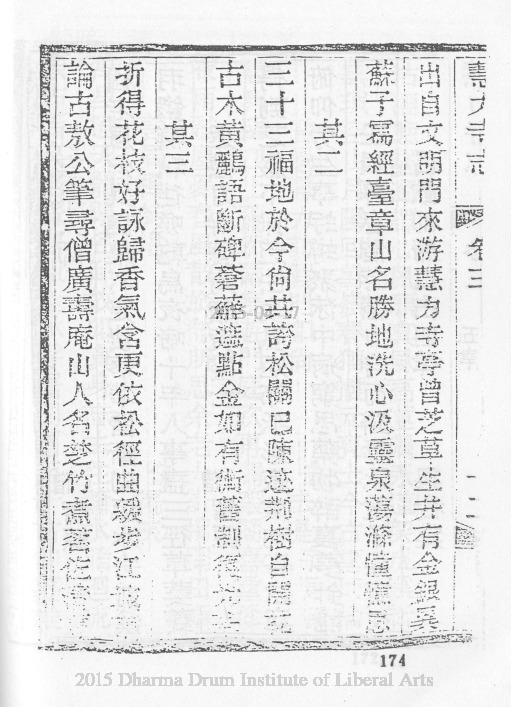 慧力寺志 卷三 十二
出自文明門來游慧力寺亭曾芝草生井有金銀
蘇子寫經臺章山名勝地洗心汲靈泉蕩滌憧憧
其二
三十三福地於今尚共誇松關已陳迹荊樹自開花
古木黃鸝語斷碑蒼蘚遮點金如有術舊制復
其三
折得花枝好詠歸香氣含更依松徑曲緩步江
論古敖公筆尋僧廣壽庵山人名楚竹煮茗佐
174
2015 Dharma Drum Institute of Liberal Arts